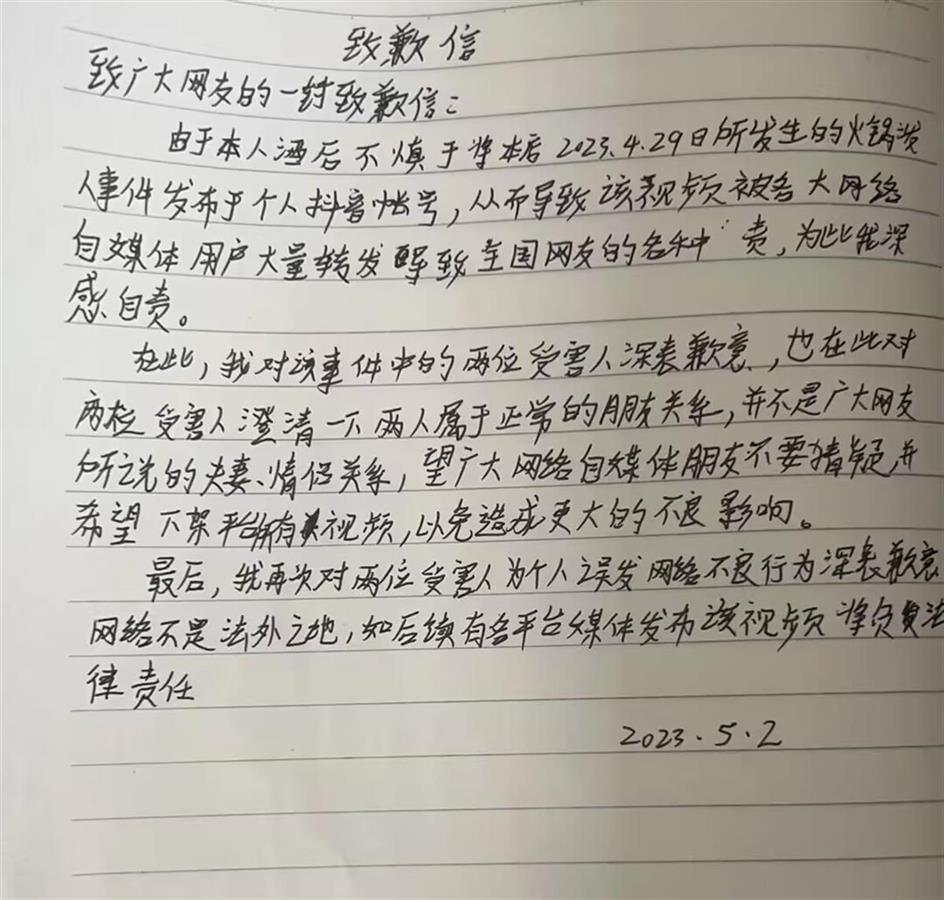 致歉信
致广大网友的一封致歉信：
由于本人酒后不慎于将本店2023.4.29日所发生的火锅泼
人事件发布于个人抖音帐号，从而导致该视频被各大网络
自媒体用户大量转发导致全国网友的各种 责，为此我深
感自责。
在此，我对该事件中的两位受害人深表歉意，也在此对
两位受害人澄清一下两人属于正常的朋友关系，并不是广大网友
所说的夫妻、情侣关系，望广大网络自媒体朋友不要猜疑，并
希望下架平台所有视频，以免造成更大的不良影响。
最后，我再次对两位受害人为个人误发网络不良行为深表歉意
网络不是法外之地，如后续有各平台媒体发布该视频将负责法
律责任
2023.5.2